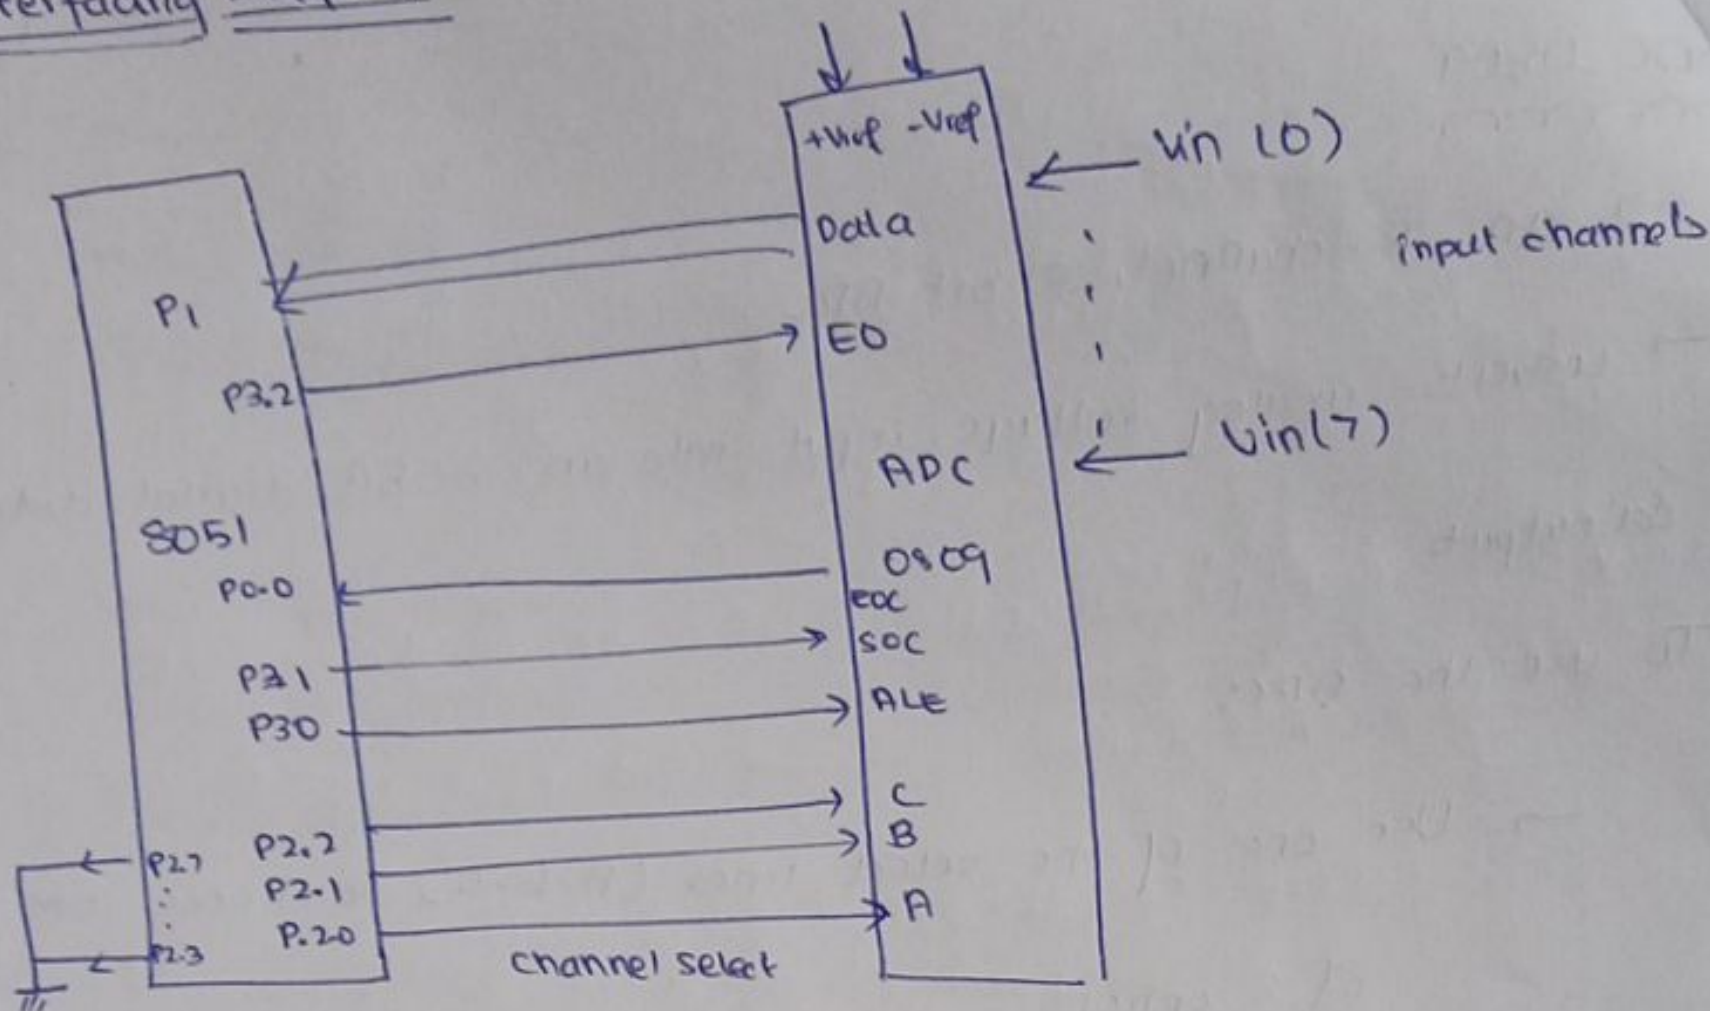 +Vref -Vref
Vin (0)
Data
input channels
P1
EO
P3.2
Vin(7)
ADC
8051
0809
P0.0
EOC
SOC
P31
ALE
P30
C
P2.2
B
P2.7
P2.1
A
P.20
P2.3
channel select